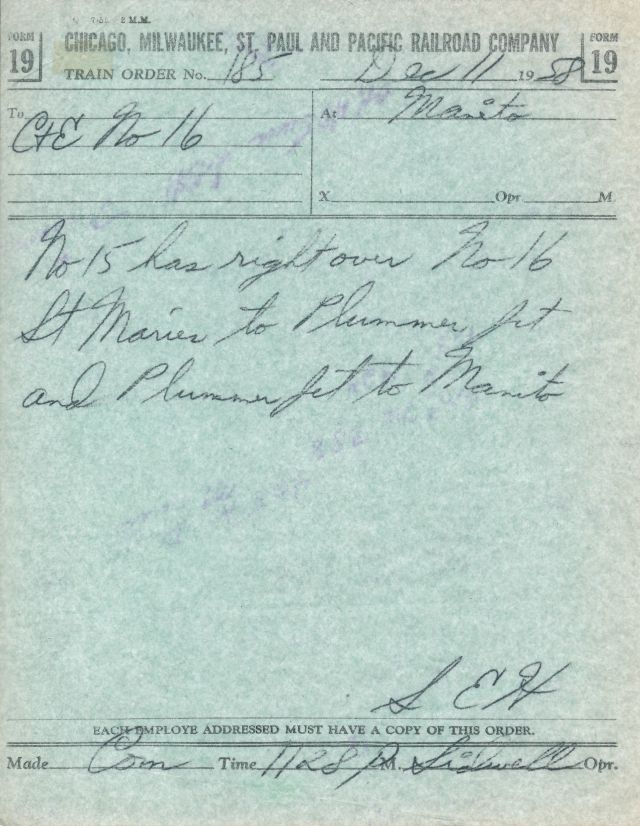 7-52 2 M.M.
FORM 19 CHICAGO, MILWAUKEE, ST. PAUL AND PACIFIC RAILROAD COMPANY FORM 19
TRAIN ORDER No. 185 Dec 11 1958
To C&E No 16 At Manito
X Opr. M
No 15 has right over No 16
St Maries to Plummer Jct
and Plummer Jct to Manito
S E H
EACH EMPLOYE ADDRESSED MUST HAVE A COPY OF THIS ORDER.
Made Com Time 1128 P M. Sidwell Opr.